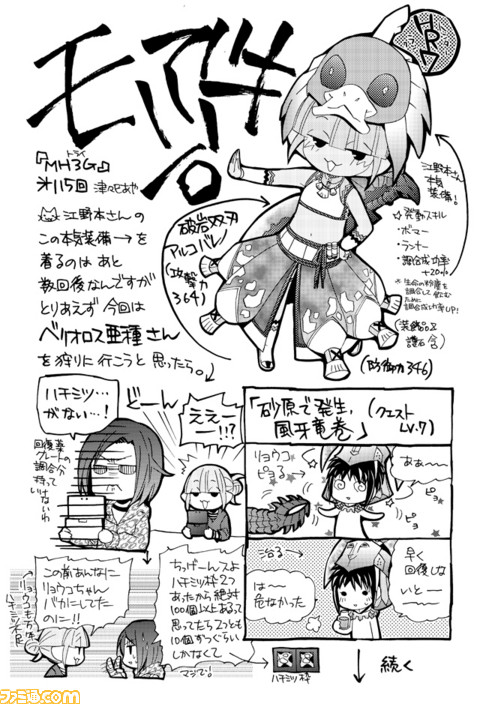 モンハン。
HR7
『MH3G』
トライ
第115回 津々巳あや
江野本さんの
この本気装備→を
着るのは あと
数回後なんですが
とりあえず 今回は
ベリオロス亜種さん
を狩りに行こうと 思ったら。
破岩双刃
アルコバレノ
(攻撃力
364)
江野本さん
本気
装備!
☆発動スキル
・ボマー
・ランナー
・調合成功率
+20%
*生命の粉塵を
調合して飲む
ために
調合成功率UP!
(装飾品&
護石 含)
(防御力346)
ハチミツ…
がない…!
どーん
ええー
ー!!?
回復薬
グレートの
調合分
持って
いけないわ
この前あんなに
リョウコちゃん
バカにしてた
のに!!
リョウコも前回
ハチミツ不足
ちっげーんスよ
ハチミツ枠2つ
あったから絶対
100個以上あるって
思ってたら2つとも
10個すっぐらい
しかなくて
マジで!
ハチミツ枠
「砂原で発生、
風牙竜巻」
(クエスト
LV.7)
リョウコ
ピヨる
ああ〜
ピヨ
ピヨ
治る
早く
回復しな
いとー
は〜
危なかった
続く
ファミ通.com